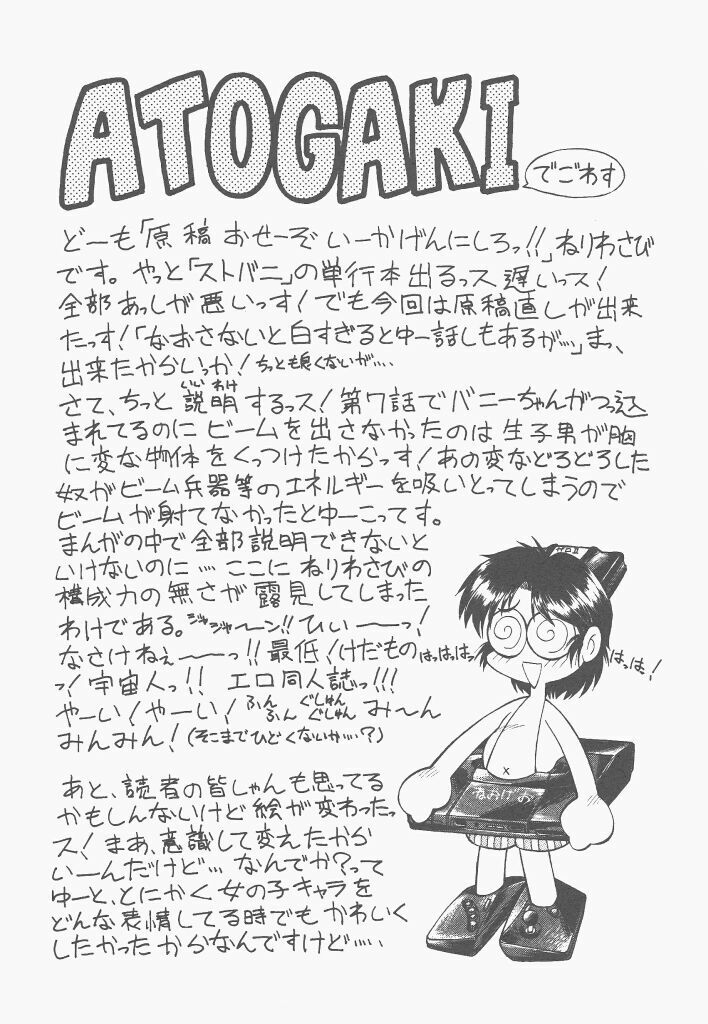 ATOGAKI
でごわす
どーも「原稿おせーぞ いーかげんにしろっ!!」ねりわさび
です。やっと「ストバニ」の単行本出るっス 遅いっス!
全部あっしが悪いっす!でも今回は原稿直しが出来
たっす!「なおさないと白すぎるとゆー話しもあるが…」まっ、
出来たからいっか!ちっとも良くないが….
さて、ちっと説明するっス!第7話でバニーちゃんがつっ込
いいわけ
まれてるのにビームを出さなかったのは生子男が胸
に変な物体をくっつけたからっす!あの変などろどろした
奴がビーム兵器等のエネルギーを吸いとってしまうので
ビームが射てなかったとゆーこってす。
まんがの中で全部説明できないと
いけないのに… ここに ねりわさびの
構成力の無さが露見してしまった
わけである。ジャジャ〜ン!!ひぃ〜〜っ!
なさけねぇ〜〜っ!!最低!けだもの
っ!宇宙人っ!! エロ同人誌っ!!!
やーい!やーい!ふんふん ぐしゅんぐしゅん み〜ん
みんみん!(そこまでひどくないか…?)
はっはっはっ
はっは!
あと、読者の皆しゃんも思ってる
かもしんないけど絵が変わったっ
ス!まあ、意識して変えたから
いーんだけど… なんでか?って
ゆーと、とにかく女の子キャラを
どんな表情してる時でもかわいく
したかったからなんですけど….
ねおげお